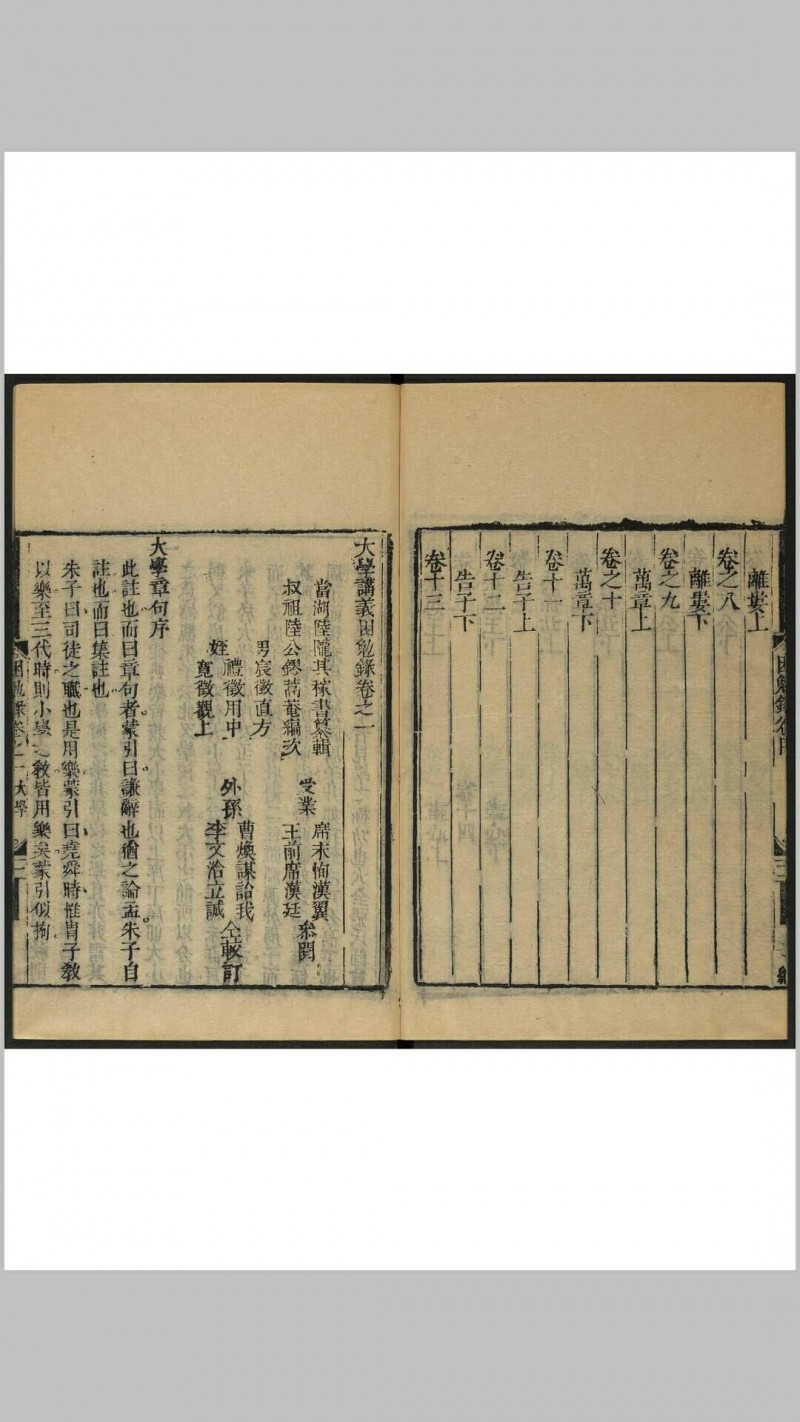 離婁上
卷之八
離婁下
卷之九
萬章上
卷之十
萬章下
卷十一
告子上
卷十二
告子下
卷十三
大學講義困勉錄卷之一
當湖陸隴其稼書纂輯
叔祖陸公鏐蒿菴編次
受業
席末恂漢翼
王前席漢廷
叅閱
男宸徵直方
姪
禮徵用中
寛徵觀上
外孫
曹煥謀詒我
李文治立誠
仝較訂
大學章句序
此註也而曰章句者蒙引曰謙辭也猶之論孟朱子自
註也而曰集註也
朱子曰司徒之職也是用樂蒙引曰堯舜時惟胄子敎
以樂至三代時則小學之敎皆用樂矣蒙引似拘
困勉錄卷之一
大學